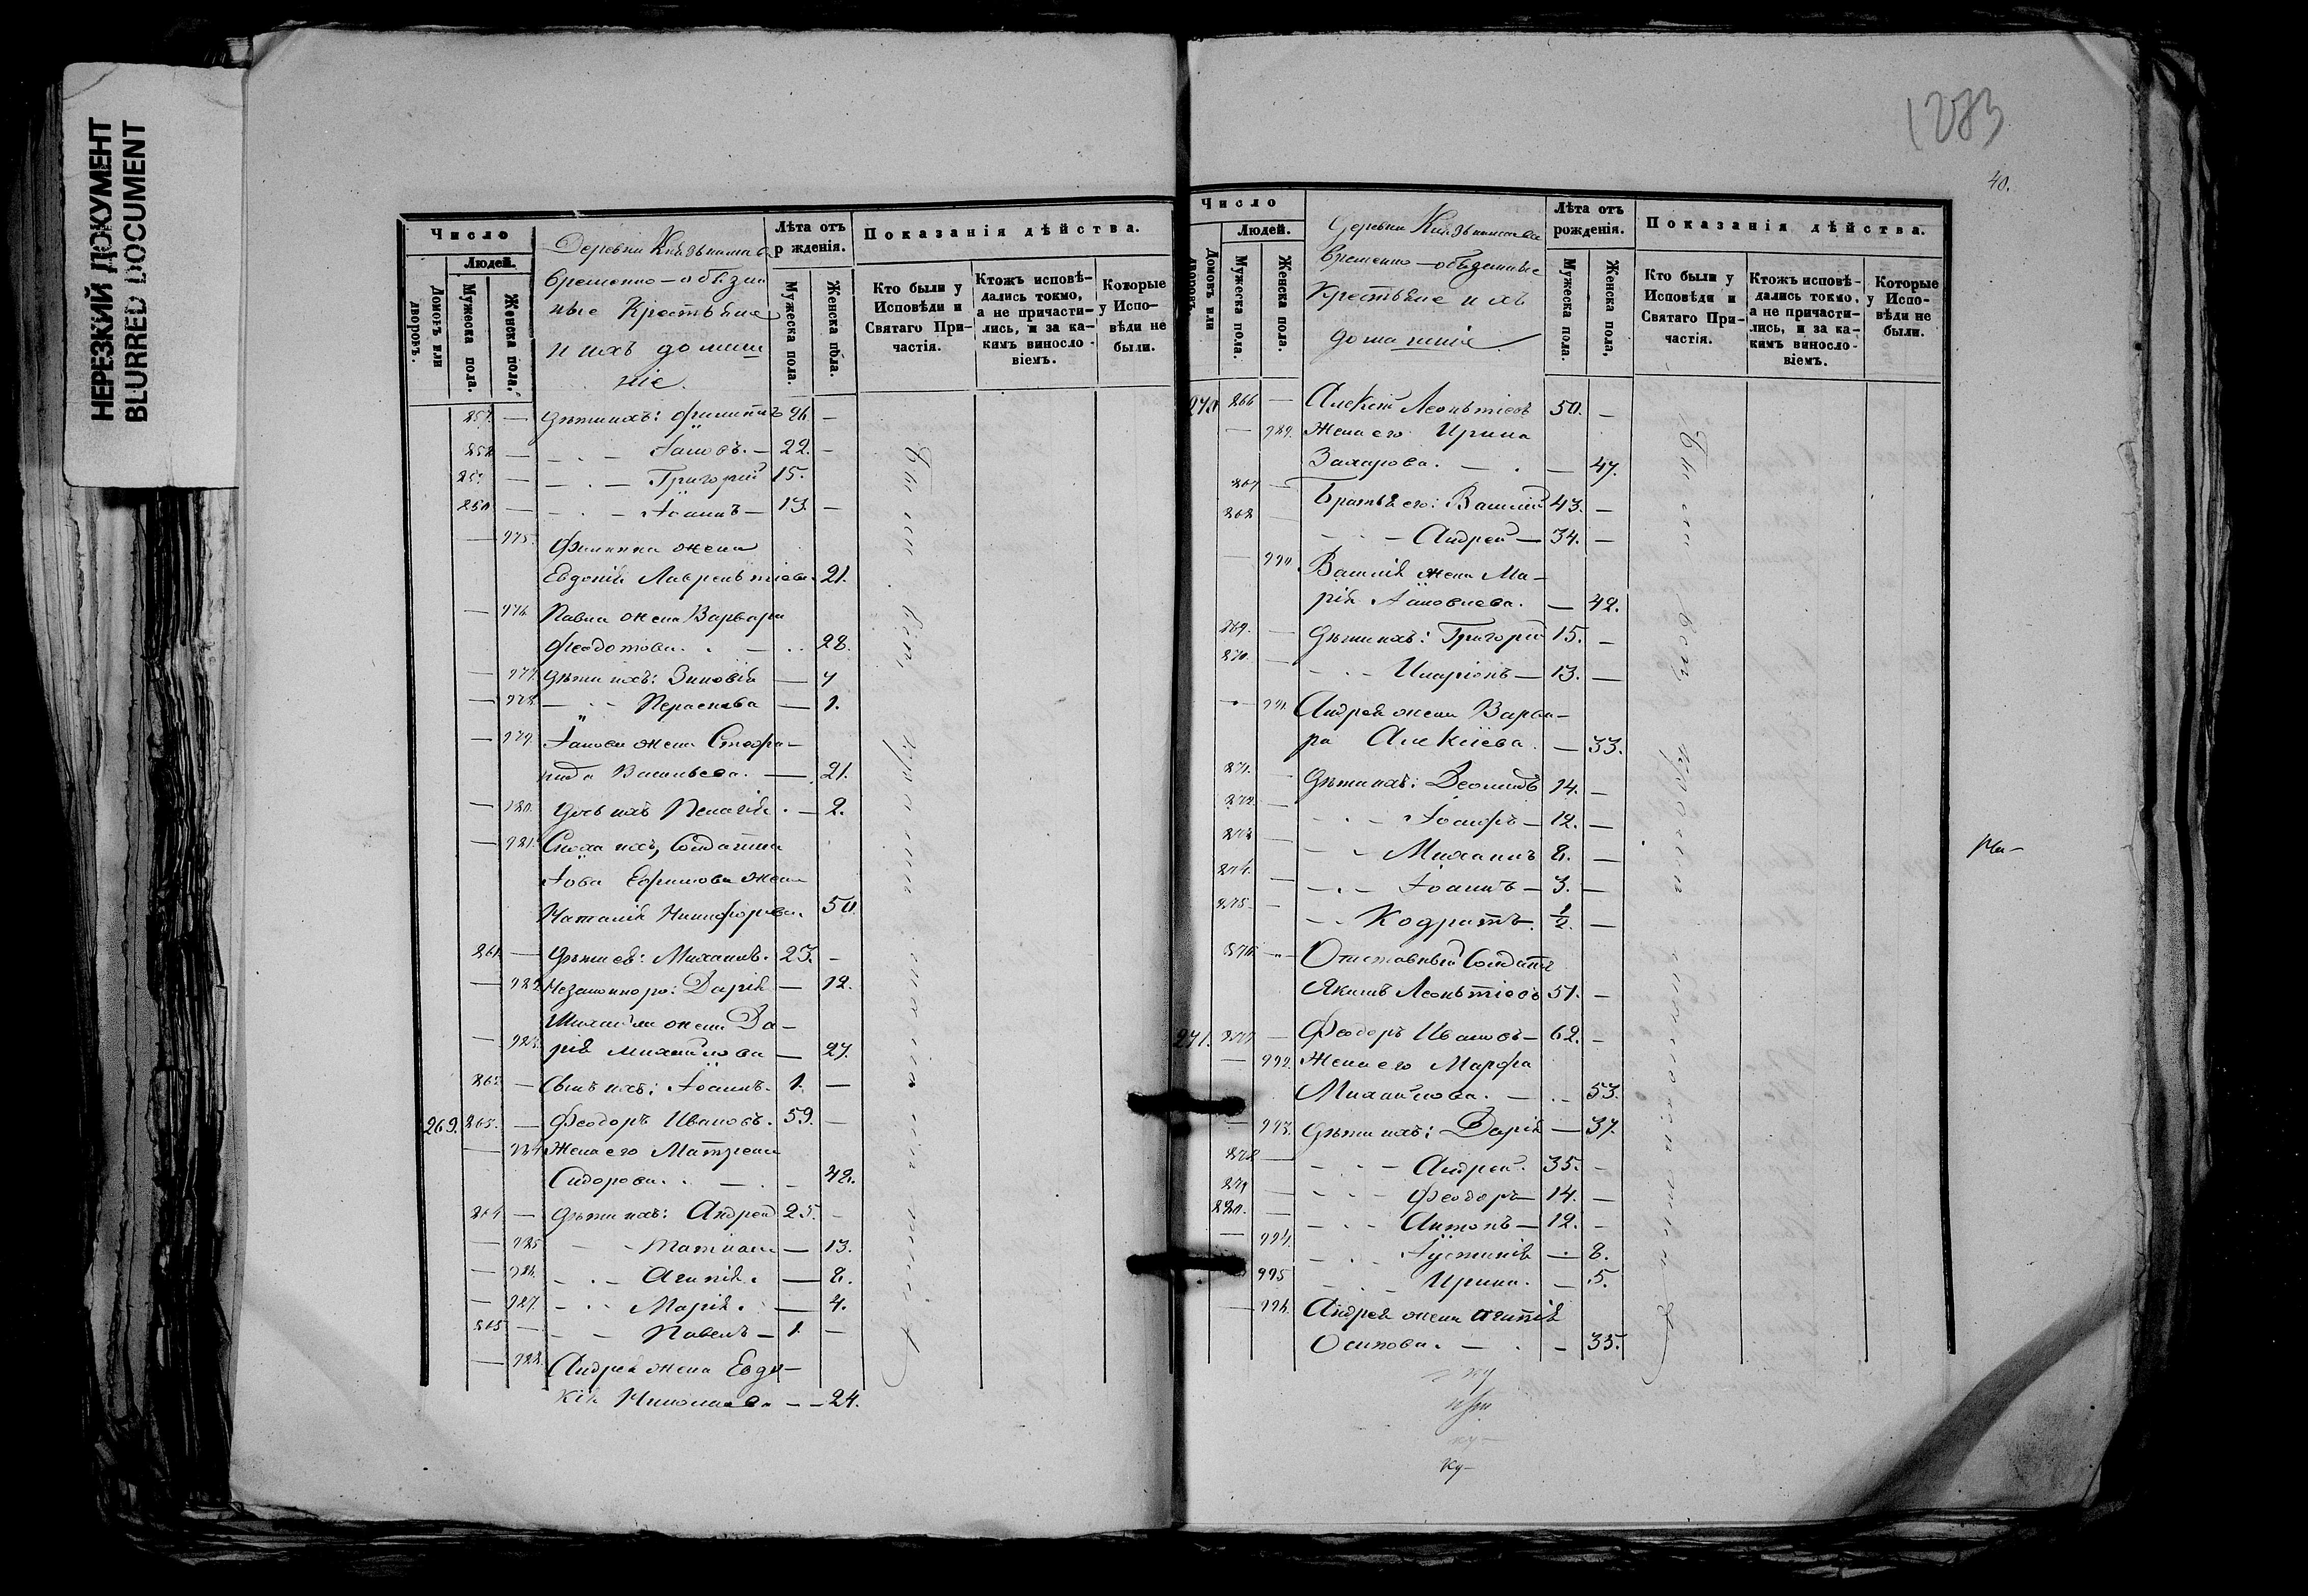 НЕРЕЗКИЙ ДОКУМЕНТ
BLURRED DOCUMENT
Число
Людей.
Домовъ или дворовъ.
Мужеска пола.
Женска пола.
Деревни
временно-обязан
ные Крестьяне
и ихъ домаш
ніе.
Лѣта отъ
р жденія.
Мужеска пола.
Женска пола.
Показанія дѣйства.
Кто были у
Исповѣди и
Святаго При-
частія.
Ктожъ исповѣ-
дались токмо,
а не причасти-
лись, и за ка-
кимъ винословіемъ.
Которые
у Испо-
вѣди не
были.
257. — Дѣти ихъ: Филиппъ 26. —
258 — Іаковъ. — 22. —
259 — Григорій 15.
260 — Іоаннъ — 13. —
— 975. Филиппа жена
Евдокія Лаврентіева. 21.
— 976 Павла жена Варвара
Феодотова. 28.
— 977. Дѣти ихъ: Зиновія — 4
— 978. Параскева — 1.
— 979. Іакова жена Стефа-
нида Васильева. — 21.
— 980. Дочь ихъ Пелагія. — 2.
— 981. Сноха ихъ, Солдатка
Іова Ефимова жена
Наталія Никифорова. 50.
261. — Дѣти ея: Михаилъ. 23. —
— 982 Незаконноро: Дарія — 12.
Михаила жена Да-
— 983. рія Михайлова — 27.
262 — Сынъ ихъ: Іоаннъ. 1. —
269. 263. — Феодоръ Ивановъ. 59. —
— 984 Жена его Матрена
Сидорова. — 48.
264 — Дѣти ихъ: Андрей 25. —
— 985 Татіана — 13.
— 986. Агапія. — 8.
— 987. Марія. — 4.
265 — Павелъ — 1. —
— 988. Андрея жена Евдо-
кія Николаева — 24.
Были
1283
40.
Число
Людей.
Домовъ или дворовъ.
Мужеска пола.
Женска пола.
Деревни
временно-обязанные
Крестьяне и ихъ
домашніе.
Лѣта отъ
рожденія.
Мужеска пола.
Женска пола.
Показанія дѣйства.
Кто были у
Исповѣди и
Святаго При-
частія.
Ктожъ исповѣ-
дались токмо,
а не причасти-
лись, и за ка-
кимъ винословіемъ.
Которые
у Испо-
вѣди не
были.
270 266 — Алексѣй Леонтіевъ 50. —
— 989. Жена его Ирина
Захарова. — 47.
267 — Братья его: Василій 43. —
268 — Андрей — 34. —
— 990. Василія жена Ма-
рія Іаковлева. — 42.
269. — Дѣти ихъ: Григорій 15. —
270. — Иларіонъ — 13. —
— 991. Андрея жена Варва-
ра Алексіева. — 33.
271. — Дѣти ихъ: Леонидъ 14. —
272. — Іосифъ — 12. —
273 — Михаилъ 8. —
274. — Іоаннъ — 3. —
275 — Кодратъ. ½. —
276. — Отставный Солдатъ
Якимъ Леонтіевъ 51. —
271. 277 — Феодоръ Ивановъ — 62. —
— 992. Жена его Марфа
Михайлова. — 53.
— 993. Дѣти ихъ: Дарія — 37.
278 — Андрей. 35. —
279 — Феодоръ — 14. —
280. — Антонъ — 12. —
— 994. Іустинія — 8.
995 Ирина. — 5.
— 996. Андрея жена Агапія
Осипова. — 35.
Были
ку-